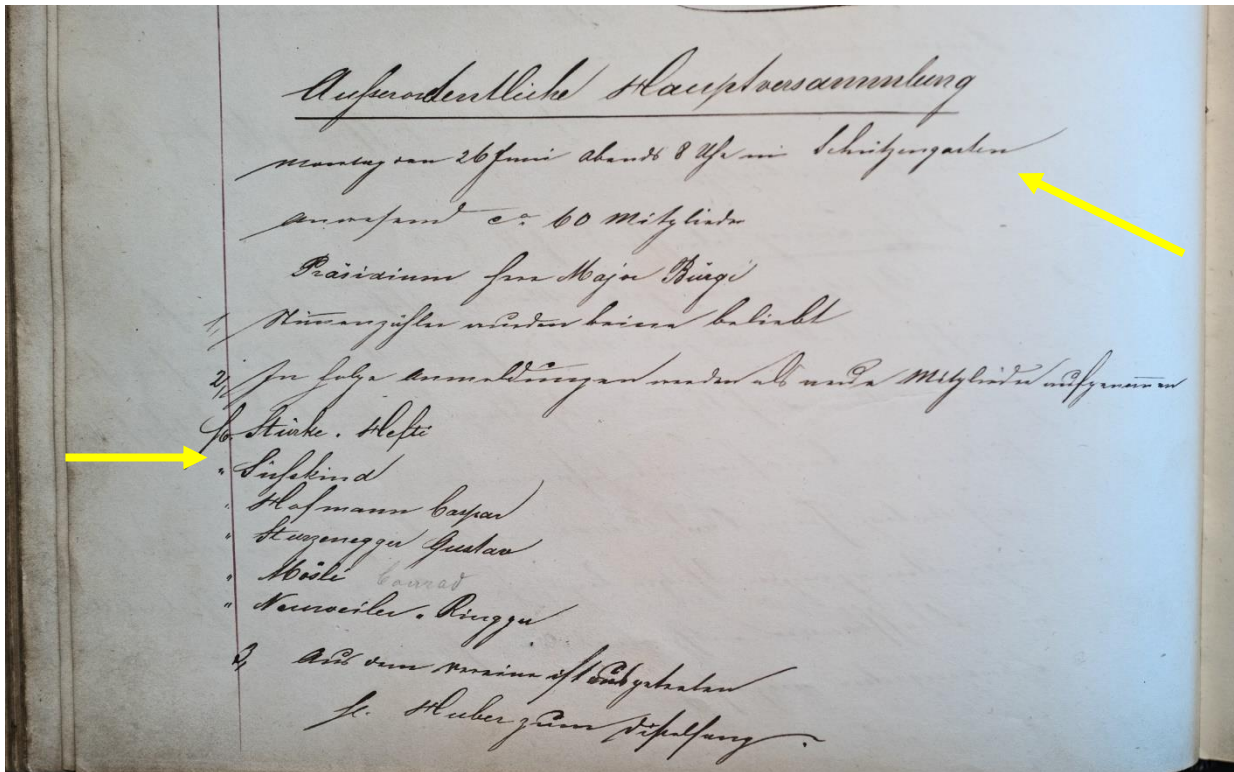 Außerordentliche Hauptversammlung
Montag den 26 Juni abends 8 Uhr im Schützengarten
Anwesend ca 60 Mitglieder
Präsidium Herr Major Bürgi
1, Stimmenzähler wurden keine beliebt
2, In Folge Anmeldungen werden als neue Mitglieder aufgenommen
Hr Stürke. Hefti
" Süßkind
" Hofmann Caspar
" Sturzenegger Gustav
" Mösli Conrad
" Neuweiler. Ringger
3, Aus dem Vereine ist ausgetreten
Hr. Huber zum